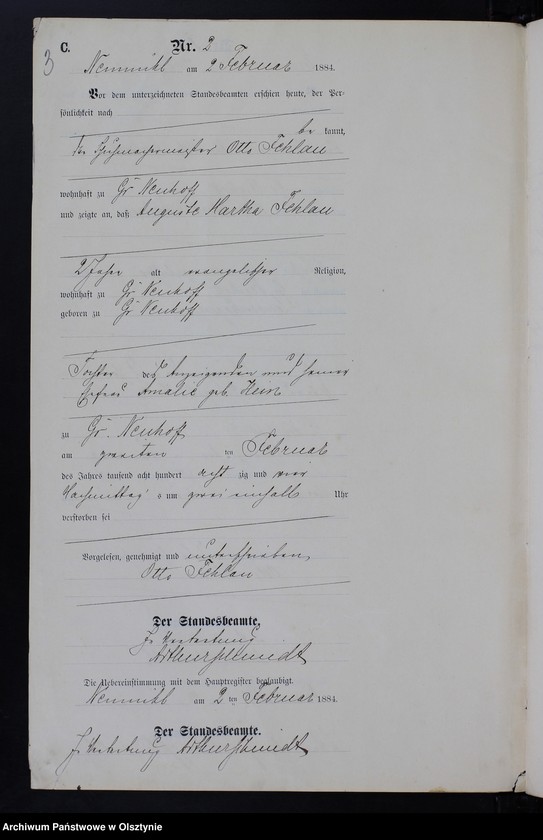 3
C. Nr. 2
am 2 Februar 1884.
Vor dem unterzeichneten Standesbeamten erschien heute, der Per-
sönlichkeit nach
be kannt,
der Schuhmachermeister Otto Fehlau
wohnhaft zu Gr. Neuhoff
und zeigte an, daß Auguste Martha Fehlau
2 Jahre alt evangelischer Religion,
wohnhaft zu Gr. Neuhoff
geboren zu Gr. Neuhoff
Tochter des Anzeigenden und seiner
Ehefrau Amalie geb. Hein
zu Gr. Neuhoff
am zweiten ten Februar
des Jahres tausend acht hundert acht zig und vier
Nachmittag s um zwei einhalb Uhr
verstorben sei
Vorgelesen, genehmigt und unterschrieben,
Otto Fehlau
Der Standesbeamte,
In Vertretung
Arthur Schmidt
Die Uebereinstimmung mit dem Hauptregister beglaubigt.
am 2 ten Februar 1884.
Der Standesbeamte.
In Vertretung Arthur Schmidt
Archiwum Państwowe w Olsztynie